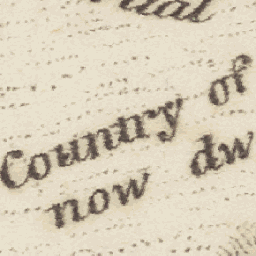 Country of
now